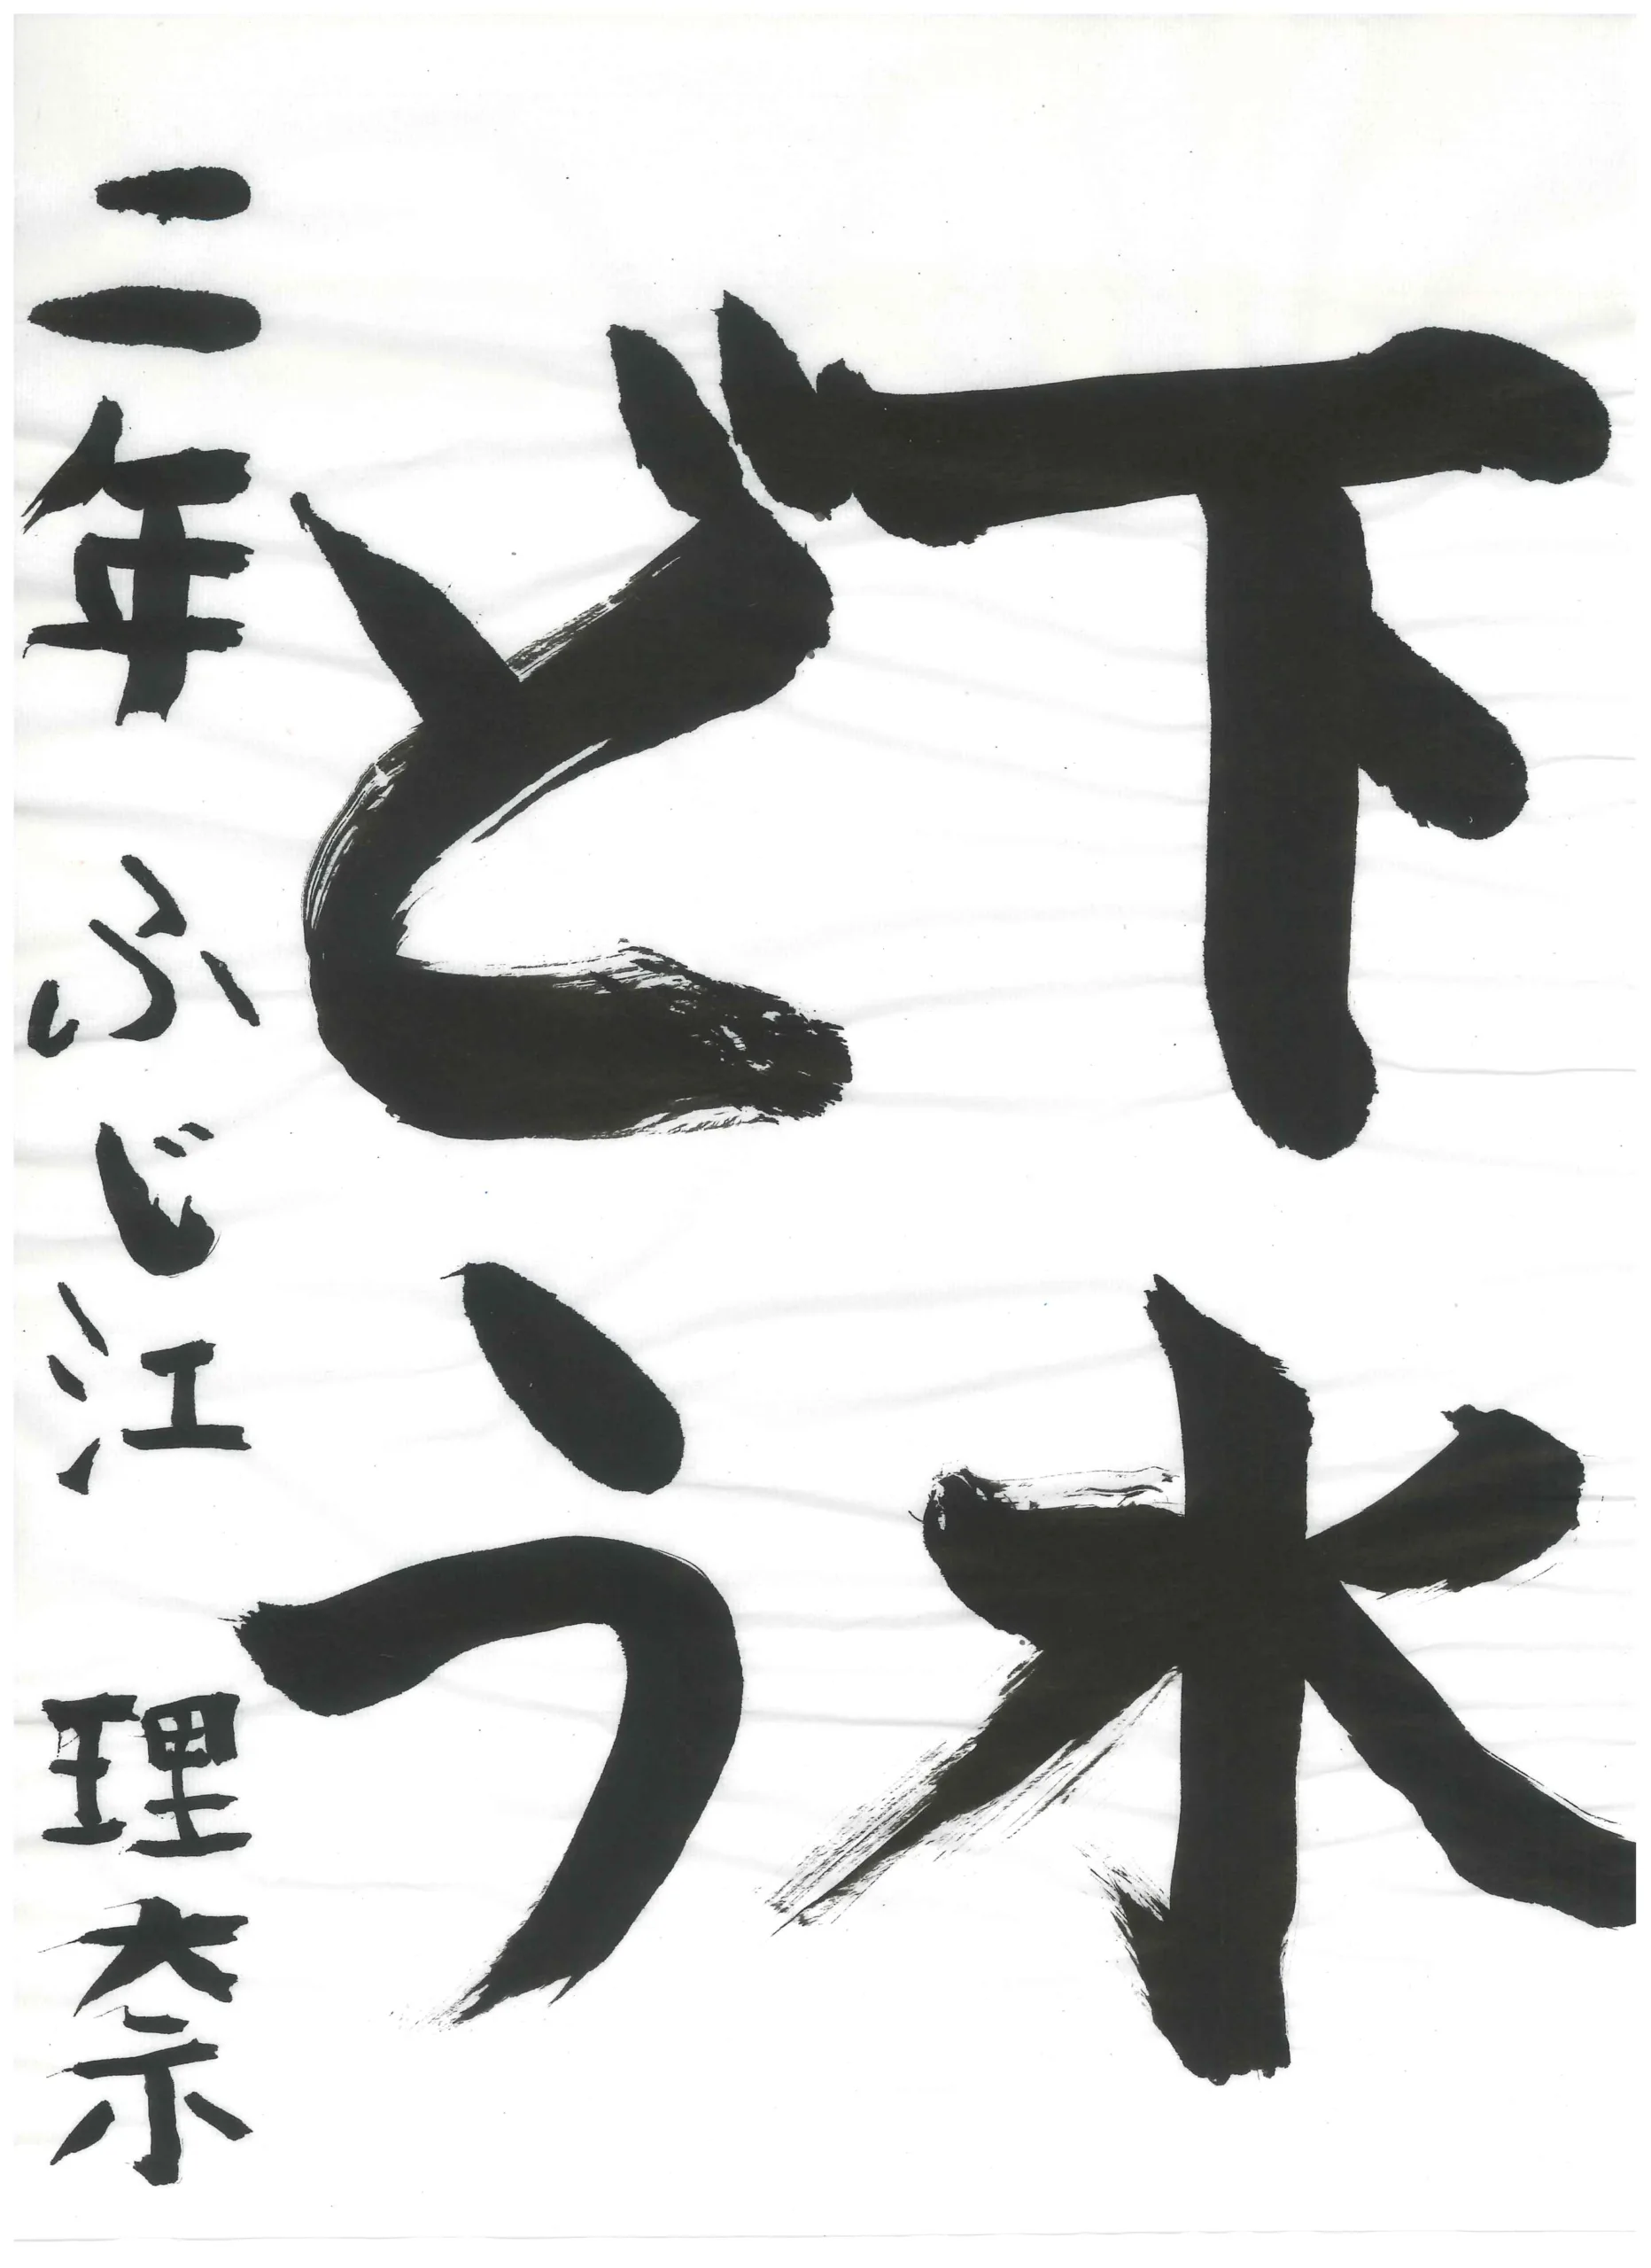 下水
どう
二年 ふじ江 理奈